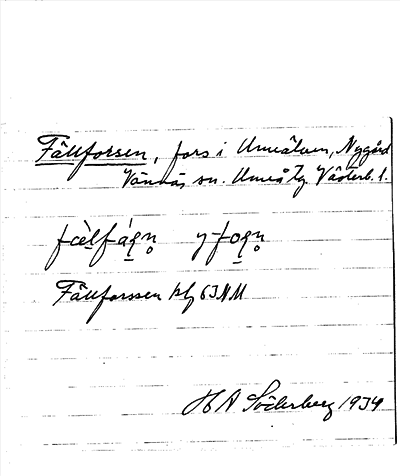 Fällforsen, fors i Umeälven, Nygård
Vännäs sn. Umeå tg Västerb. l.
Fällforssen blj 63NM
H A Söderberg 1934